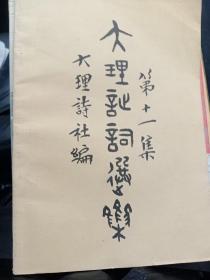 第十一集
大理詩詞選集
大理詩社編